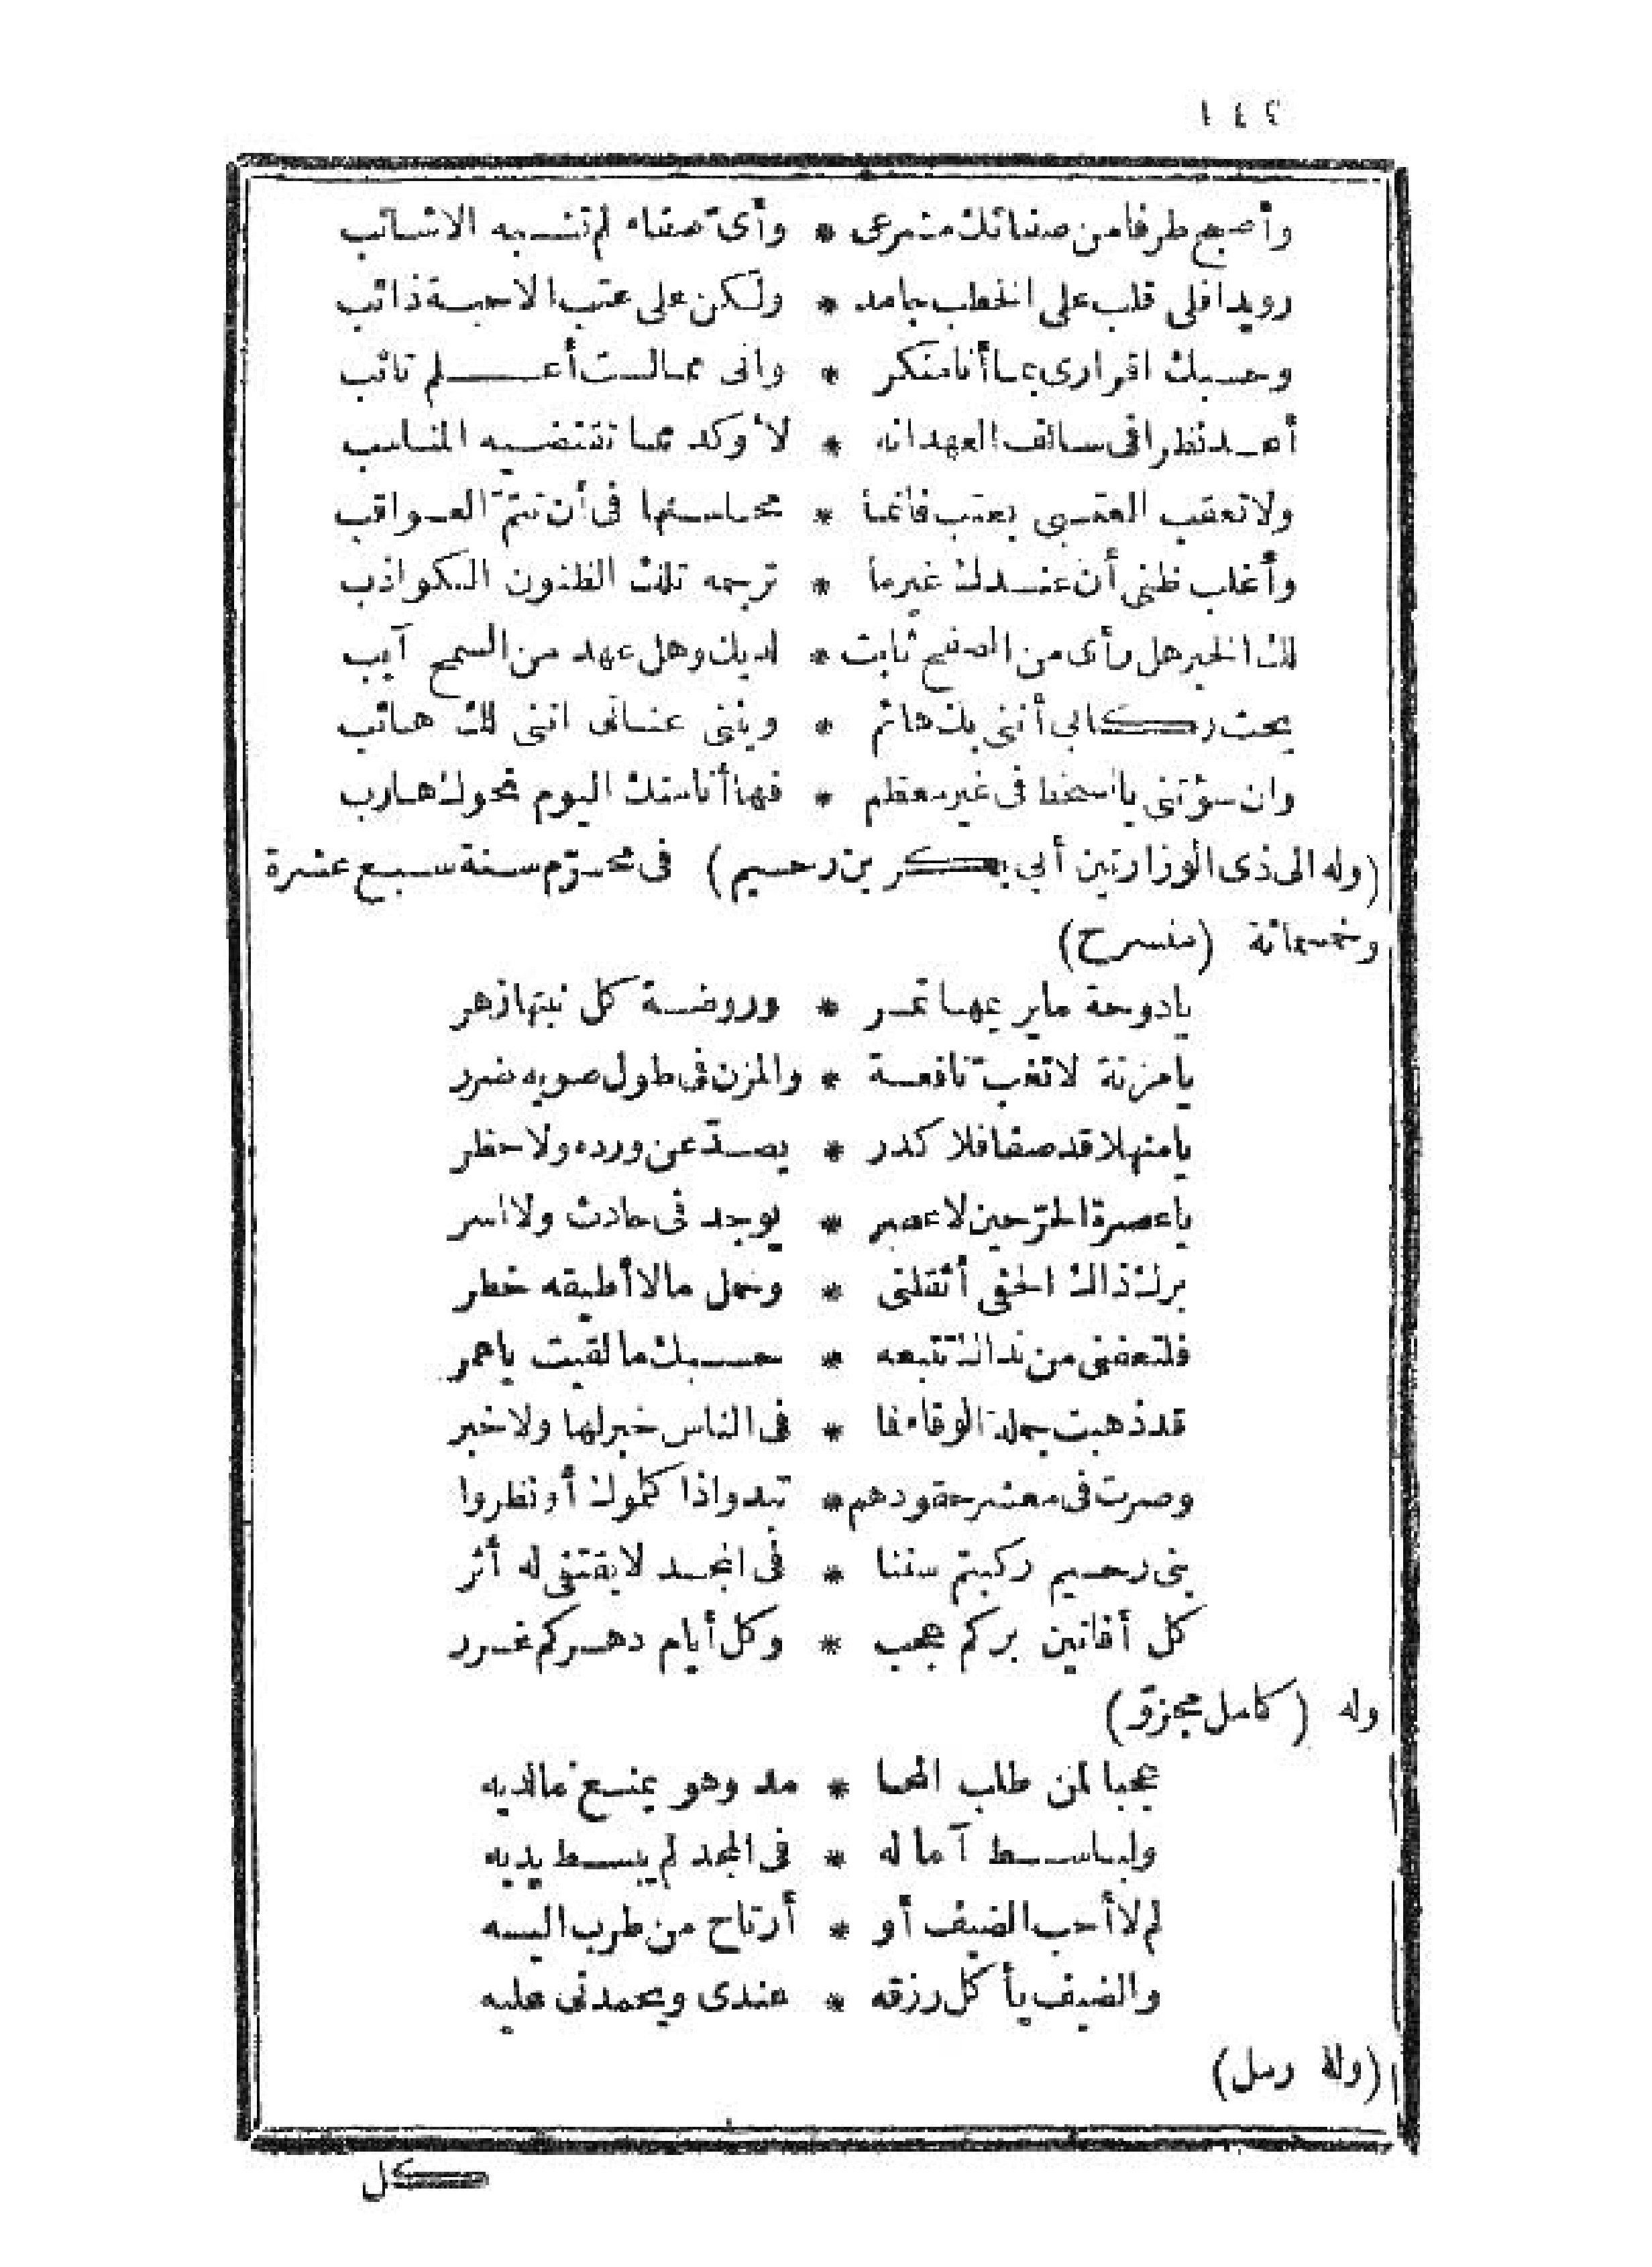 ١٤٢
وأصبح طرفا من صفائك مشرعى * وأى صفاء لم تشبه الاشائب
رويدا فلى قلب على الخطب جامد * ولكن على عتب الاحبة ذائب
وحسبك اقرارى بما أنا منكر * وانى مما لست أعلم تائب
أعد نظرا فى سالف العهد انه * لأوكد مما تقتضيه المناسب
ولا تعقب العقبى بعتب فانما * محاسنها فى أن تتم العواقب
وأغلب ظنى أن عندك غير ما * ترجمه تلك الظنون الكواذب
لك الخير هل رأى من الصفح ثابت * لديك وهل عهد من السمح آيب
يحث ركابى أننى بك هائم * ويثنى عنانى اننى لك هائب
وان سؤتنى بالسخط فى غير معظم * فها أنا منك اليوم نحوك هارب
(وله الى ذى الوزارتين أبى بكر بن رحيم) فى محرّم سنة سبع عشرة
وخمسمائة (منسرح)
يادوحة ما يريمها ثمر * وروضة كل نبتها زهر
يامزنة لا تغبّ نافعة * والمزن فى طول صوبه ضرر
يامنهلا قد صفا فلا كدر * يصدّ عن ورده ولا خطر
ياعصرة الحرّ حين لا عصر * يوجد فى حادث ولا اسر
برك ذاك الحفى أثقلنى * وحمل مالا أطيقه خطر
فلتعفنى من نداك تتبعه * حسبك ما لقيت ياعمر
قد ذهبت جملة الوفاء فما * فى الناس خبر لها ولا خبر
وصرت فى معشر حقودهم * تبدو اذا كلموك أو نظروا
بنى رحيم ركبتم سننا * فى المجد لا يقتفى له أثر
كل أفانين بركم عجب * وكل أيام دهركم غرر
وله (كامل مجزوّ)
عجبا لمن طلب المحا * مد وهو يمنع ما لديه
ولباسط آماله * فى المجد لم يبسط يديه
لم لا أحب الضيف أو * أرتاح من طرب اليه
والضيف يأكل رزقه * عندى ويحمدنى عليه
(وله رمل)
كل